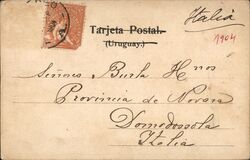 Italia
Tarjeta Postal.
(Uruguay.)
1904
Señores Burla Hnos
Provincia de Novara
Domodossola
Italia